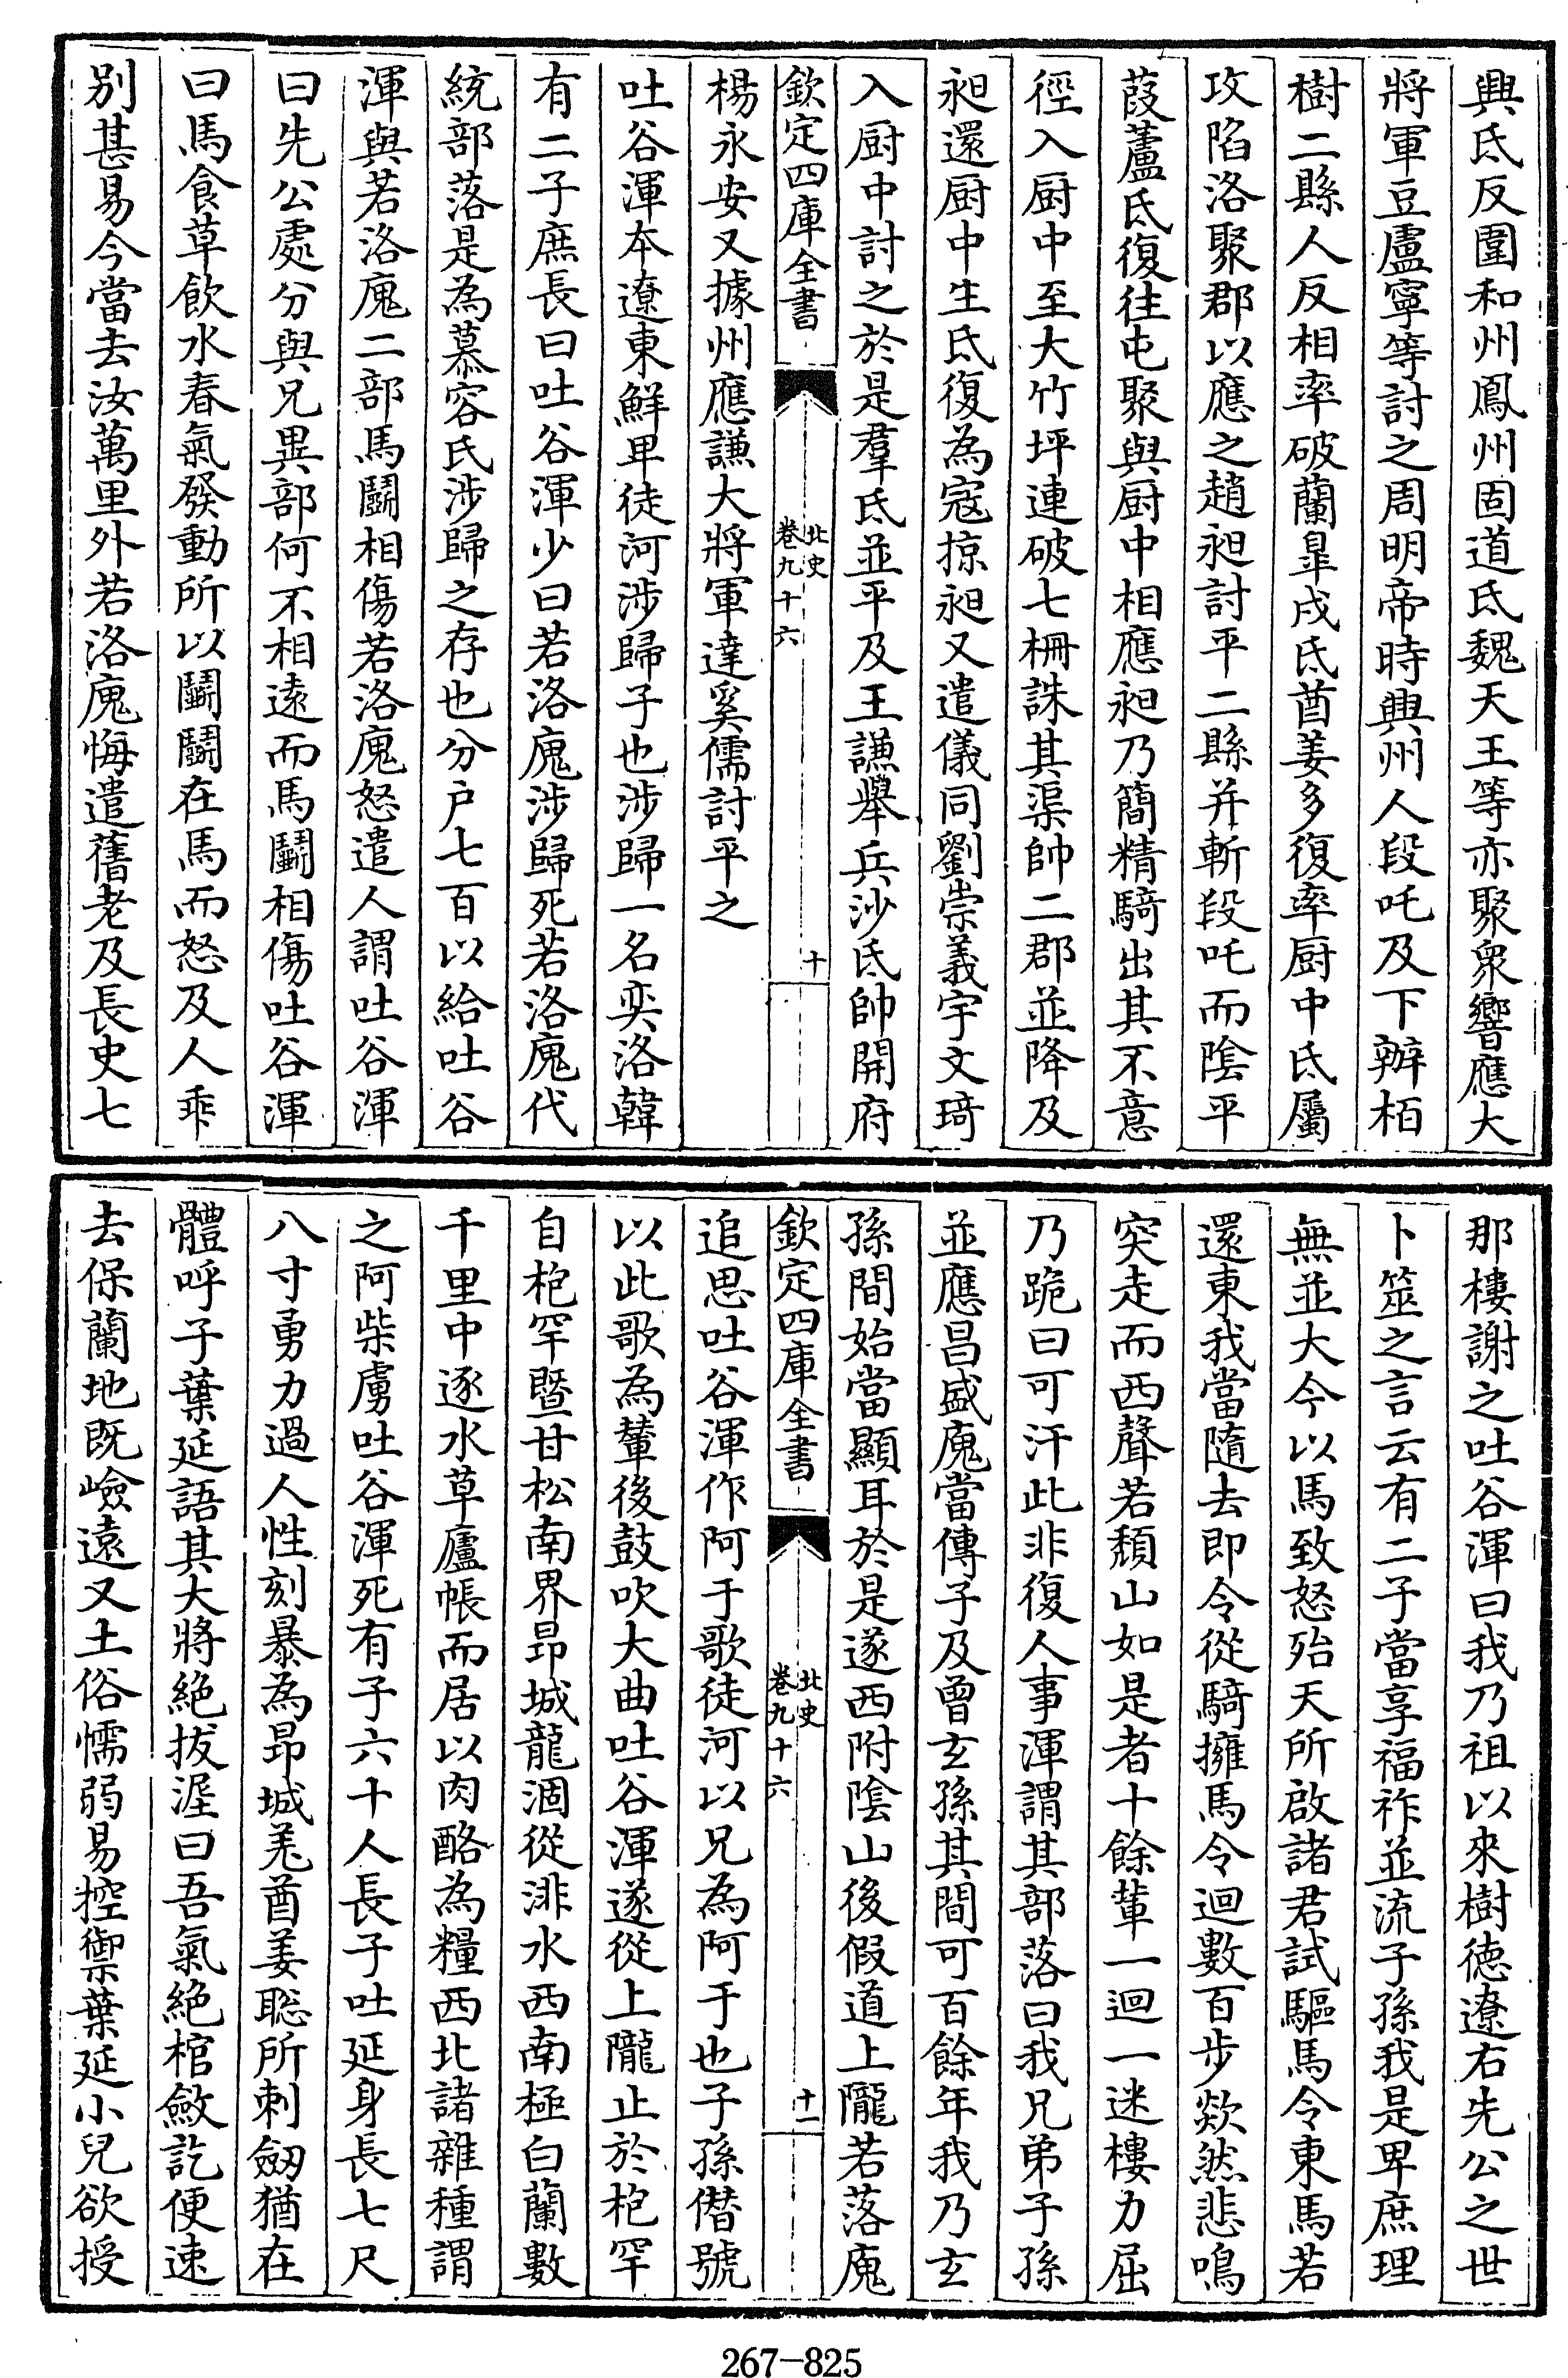 興氐反圍和州鳳州固道氐魏天王等亦聚衆響應大
將軍豆盧寧等討之周明帝時興州人段吒及下辦栢
樹二縣人反相率破蘭臯戍氐酋姜多復率厨中氐屬
攻陷洛聚郡以應之趙昶討平二縣并斬段吒而陰平
葭蘆氐復往屯聚與厨中相應昶乃簡精騎出其不意
徑入厨中至大竹坪連破七柵誅其渠帥二郡並降及
昶還厨中生氐復為寇掠昶又遣儀同劉崇義宇文琦
入厨中討之於是羣氐並平及王謙舉兵沙氐帥開府
欽定四庫全書
北史
卷九十六
十
楊永安又據州應謙大將軍達奚儒討平之
吐谷渾本遼東鮮卑徒河涉歸子也涉歸一名奕洛韓
有二子庶長曰吐谷渾少曰若洛廆涉歸死若洛廆代
統部落是為慕容氏涉歸之存也分户七百以給吐谷
渾與若洛廆二部馬鬬相傷若洛廆怒遣人謂吐谷渾
曰先公處分與兄異部何不相遠而馬鬬相傷吐谷渾
曰馬食草飲水春氣發動所以鬬鬬在馬而怒及人乖
別甚易今當去汝萬里外若洛廆悔遣舊老及長史七
那樓謝之吐谷渾曰我乃祖以來樹德遼右先公之世
卜筮之言云有二子當享福祚並流子孫我是卑庶理
無並大今以馬致怒殆天所啟諸君試驅馬令東馬若
還東我當隨去即令從騎擁馬令迴數百步歘然悲鳴
突走而西聲若頽山如是者十餘輩一迴一迷樓力屈
乃跪曰可汗此非復人事渾謂其部落曰我兄弟子孫
並應昌盛廆當傳子及曾玄孫其間可百餘年我乃玄
孫間始當顯耳於是遂西附陰山後假道上隴若落廆
欽定四庫全書
北史
卷九十六
十一
追思吐谷渾作阿于歌徒河以兄為阿于也子孫僭號
以此歌為輦後鼓吹大曲吐谷渾遂從上隴止於枹罕
自枹罕暨甘松南界昂城龍涸從洮水西南極白蘭數
千里中逐水草廬帳而居以肉酪為糧西北諸雜種謂
之阿柴虜吐谷渾死有子六十人長子吐延身長七尺
八寸勇力過人性刻暴為昂城羌酋姜聡所刺劒猶在
體呼子葉延語其大將絶拔渥曰吾氣絶棺斂訖便速
去保蘭地既嶮遠又土俗懦弱易控禦葉延小兒欲授
267-825